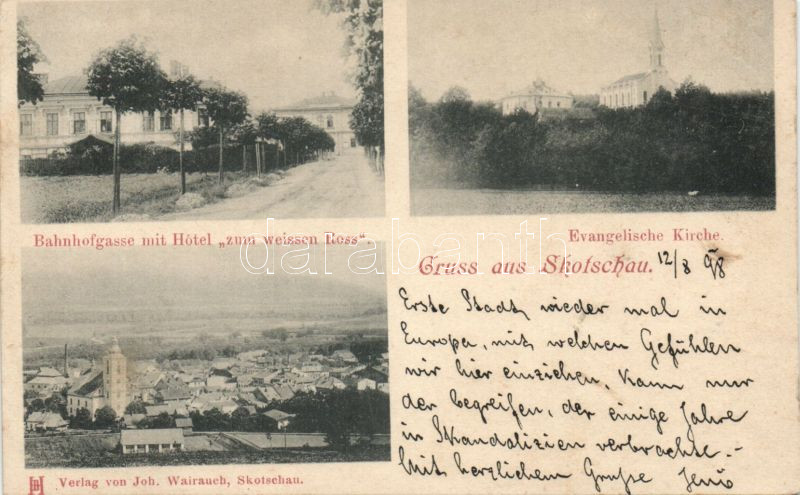 Bahnhofgasse mit Hôtel „zum weissen Ross“.
Evangelische Kirche.
darabanth
Gruss aus Skotschau. 12/8 98
Erste Stadt wieder mal in
Europa, mit welchen Gefühlen
wir hier einziehen, kann nur
der begreifen, der einige Jahre
in Skandalizien verbrachte.-
Mit herzlichem Gruße Jenö
Verlag von Joh. Wairauch, Skotschau.